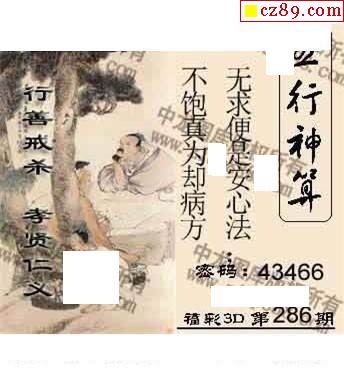 cz89.com
行神算
无求便是安心法；
不饱真为却病方
行善戒杀 孝贤仁义
密码：43466
福彩3D 第286期